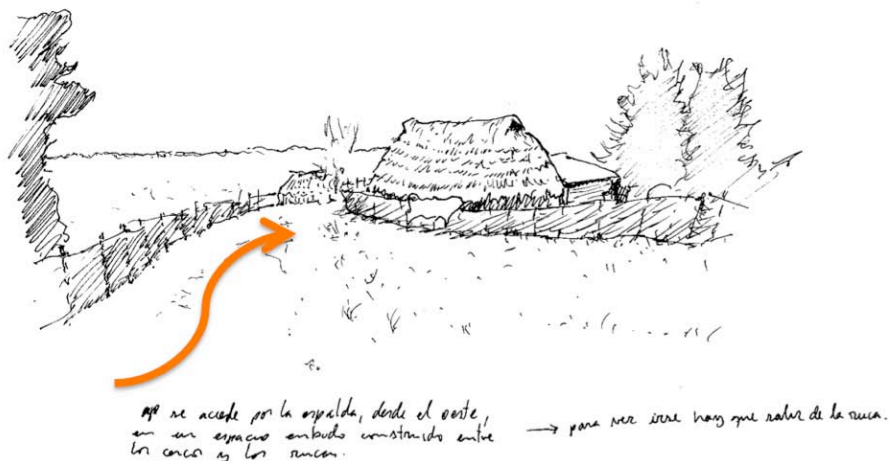 se accede por la espalda, desde el oeste,
en un espacio embudo construido entre
los cercos y las rucas.
→ para ver irse hay que salir de la ruca.